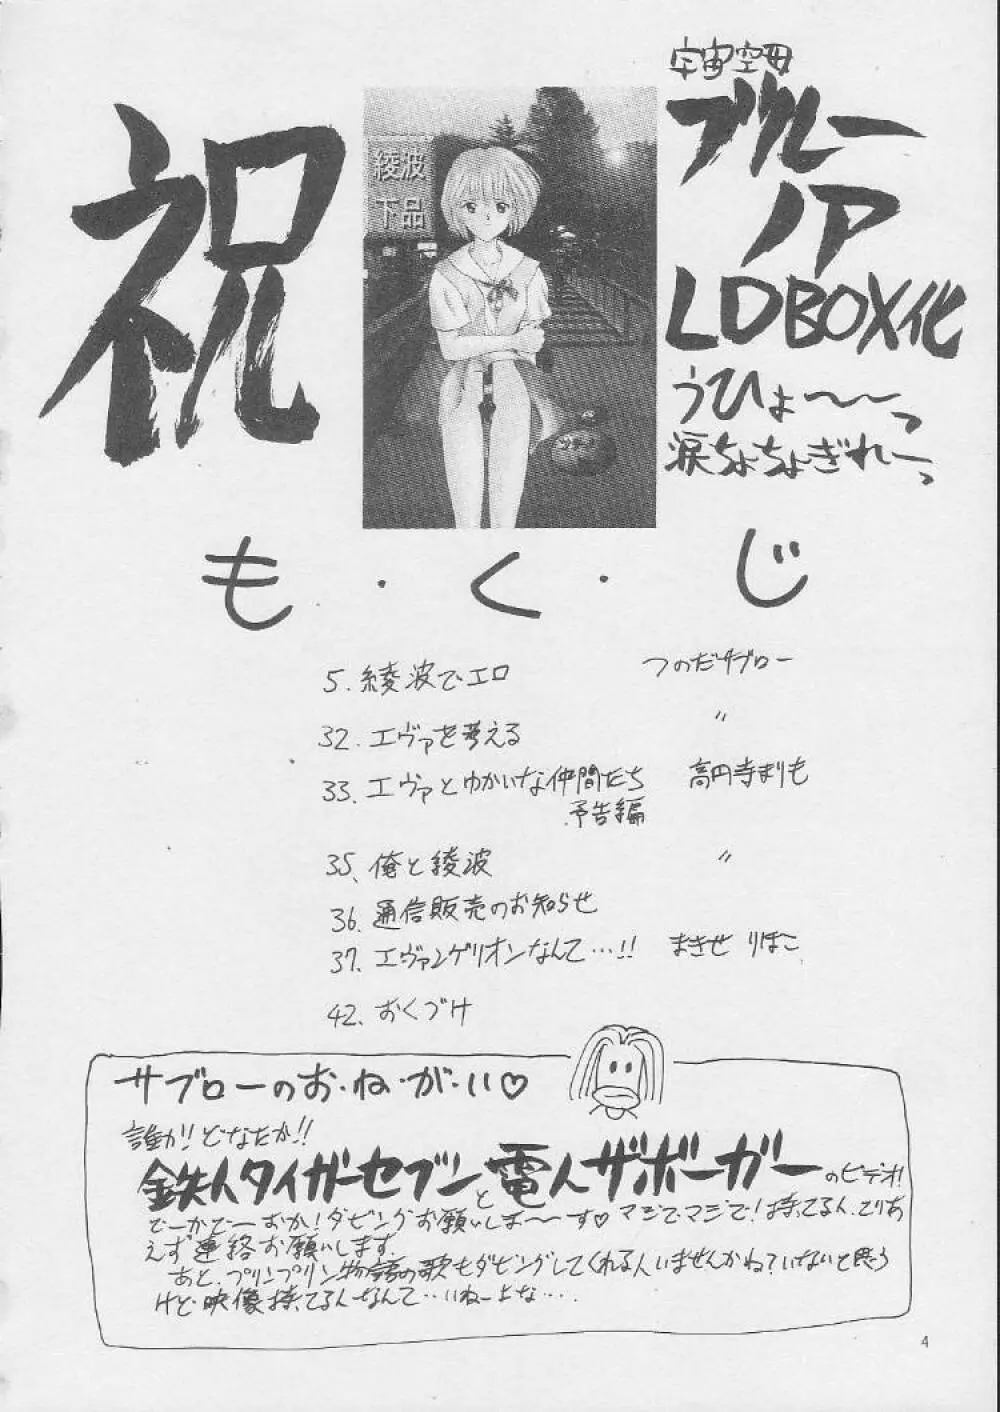 祝
綾波
下品
宇宙空母
ブルー
ノア
LD BOX化
うひょ〜〜っ
涙ちょちょぎれーっ
も・く・じ
5. 綾波でエロ つのだサブロー
32. エヴァを考える 〃
33. エヴァとゆかいな仲間たち 高円寺まりも
予告編
35. 俺と綾波 〃
36. 通信販売のお知らせ
37. エヴァンゲリオンなんて…!! まきせ りほこ
42. おくづけ
サブローのお・ね・が・い♡
誰か!! どなたか!!
鉄人タイガーセブンと電人ザボーガーのビデオ!
でーかでーおか! ダビングお願いしま〜〜す♡ マジでマジで! 持ってる人、とりあ
えず連絡お願いします。
あと、プリンプリン物語の歌もダビングしてくれる人いませんかね? いないと思う
けど、映像持ってる人なんて…いねーよな…。
4